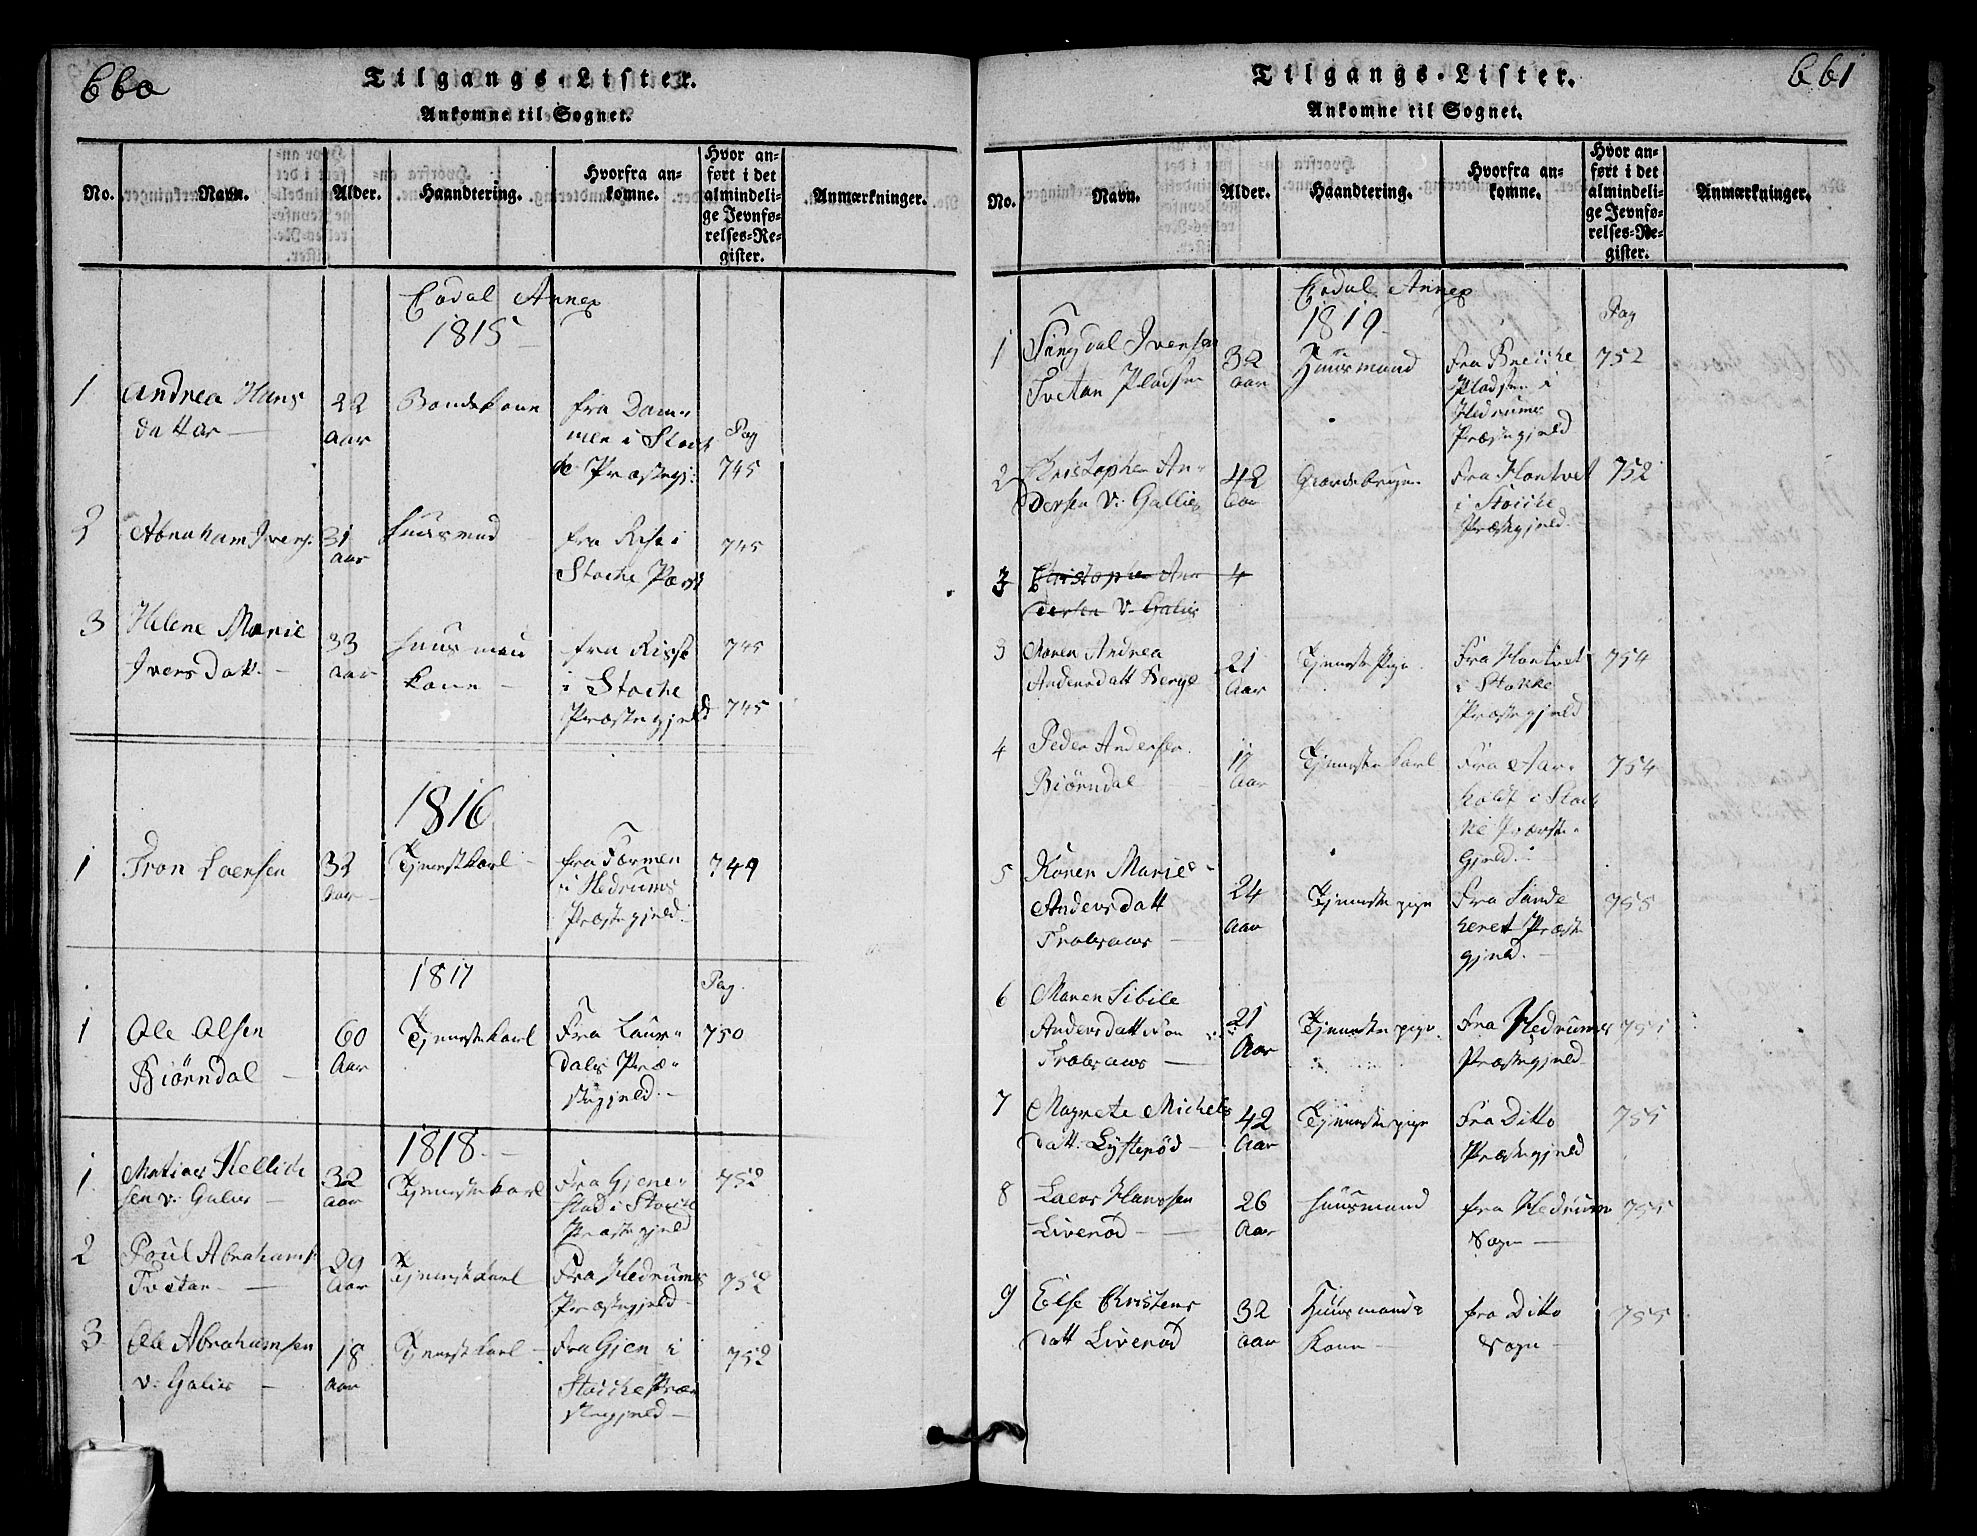 660
Tilgangs-Lister.
Ankomne til Sognet.
No.
Navn.
Alder.
Haandtering.
Hvorfra an-
komne.
Hvor an-
ført i det
almindeli-
ge Jevnfø-
relses-Re-
gister.
Anmærkninger.
Codal Annex
1815
1
Andrea Hans
datter
22
Aar
Bondekone
fra Dom-
men i Stock
ke Præstegj:
Pag
745
2
Abraham Ivers.
31
Aar
fra Rise i
Stocke Præst
745
3
Helene Marie
Ivers Datt.
33
Aar
Huusman
kone
fra Rise
i Stocke
Præstegjeld
745
745
1816
1
Tron Laersen
32
Aar
Tjenestkarl
fra Førmen
i Hedrums
Præstegjeld.
749
1817
Pag.
1
Ole Olsen
Biørndal
60
Aar
Tjenestekarl
Fra Laur-
dals Præ-
stegjeld.
750
1818.
1
Matias Kellick
sen v: Galis
32
Aar
Tjenestekarl
Fra Gjene-
stad i Stocke
Præstegjeld
752
2
Poul Abrahams
Tvetan
29
Aar
Tjenestekarl
Fra Hedrums
Præstegjeld
752
3
Ole Abrahamsen
v: Galis
18
Aar
Tjenestkarl
Fra Gjen i
Stocke Præ
stegjeld
752
661
Tilgangs-Lister.
Ankomne til Sognet.
No.
Navn.
Alder.
Haandtering.
Hvorfra an-
komne.
Hvor an-
ført i det
almindeli-
ge Jevnfø-
relses-Re-
gister.
Anmærkninger.
Codal Annex
1819
Pag
1
Iversen
Tvetan Pladsen
32
Aar
Huusmand
Fra
Pladsen i
Hedrums
Præstegjeld
752
2
Christopher An-
dersen v: Gallis
42
Aar
Gaardebruger
Fra Hontvet
i Stocke
Præstegjeld.
752
3
Christopher An
dersen v: Galis
4
3
Maren Andrea
Andersdatt Berge
21
Aar
Tjeneste Pige
Fra Hontvet
i Stokke
Præstegjeld
754
4
Peder Andersen
Biørndal
19
Aar
Tjenestekarl
Fra Aar-
holdt i Stock
ke Præste-
Gjeld.
754
5
Karen Marie
Andersdatt
24
Aar
Tjenestepige
Fra Sande
heret Præst
gjeld.
755
6
Maren Sibile
Andersdatt
21
Aar
Tjenestepige
Fra Hedrums
Præstegjeld
755
7
Magrete Michels
datt: Lysterød
42
Aar
Tjenestepige
Fra Ditto
Præstegjeld
755
8
Laers Hanssen
Liverød
26
Aar
Huusmand
fra Hedrum
Sogn
755
9
Else Christens
datt Liverød
32
Aar
Huusmands
Kone
fra Ditto
Sogn
755